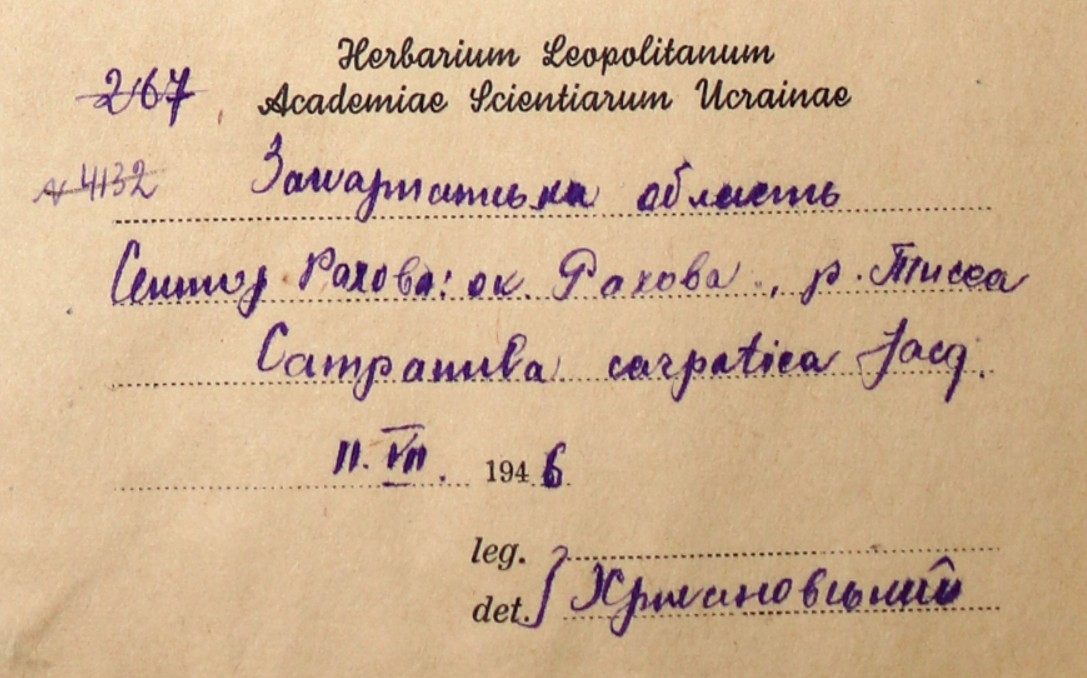 Herbarium Leopolitanum
267
Academiae Scientiarum Ucrainae
№ 4132
Закарпатська область
Рахова: ок. Рахова, р. Тисса
Campanula carpatica Jacq.
11. VII. 1946
leg.
det.